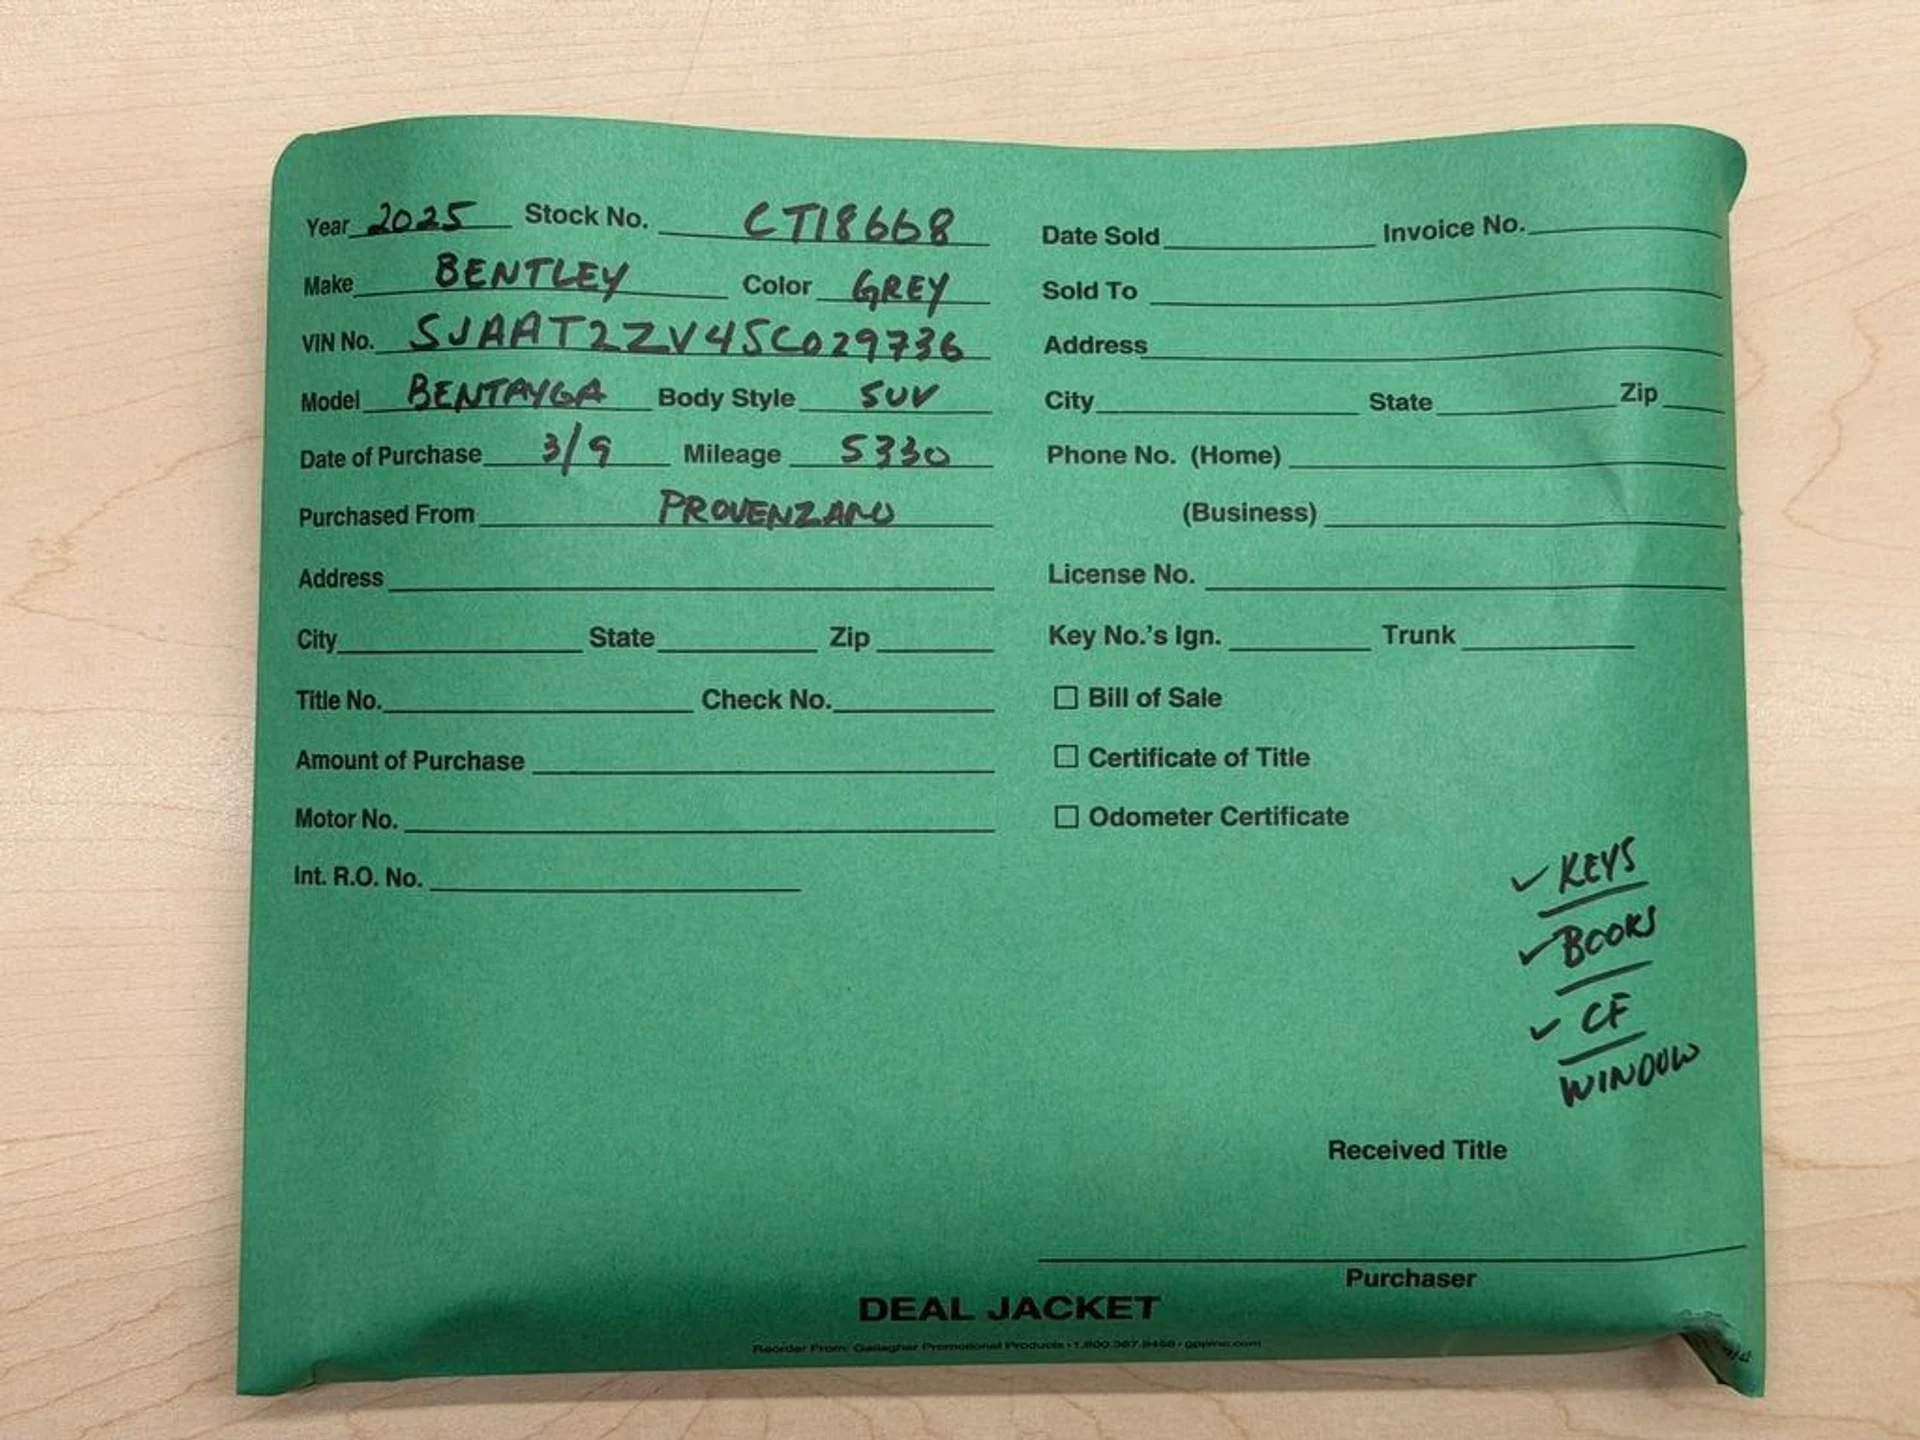 Year 2025 Stock No. CT18668
Make BENTLEY Color GREY
VIN No. SJAAT2ZV4SC029736
Model BENTAYGA Body Style SUV
Date of Purchase 3/9 Mileage 5330
Purchased From PROVENZANO
Address
City State Zip
Title No. Check No.
Amount of Purchase
Motor No.
Int. R.O. No.
Date Sold Invoice No.
Sold To
Address
City State Zip
Phone No. (Home)
(Business)
License No.
Key No.'s Ign. Trunk
☐ Bill of Sale
☐ Certificate of Title
☐ Odometer Certificate
✓ KEYS
✓ BOOKS
✓ CF
WINDOW
Received Title
Purchaser
DEAL JACKET
Reorder From: Gallagher Promotional Products • 1.800.367.8458 •